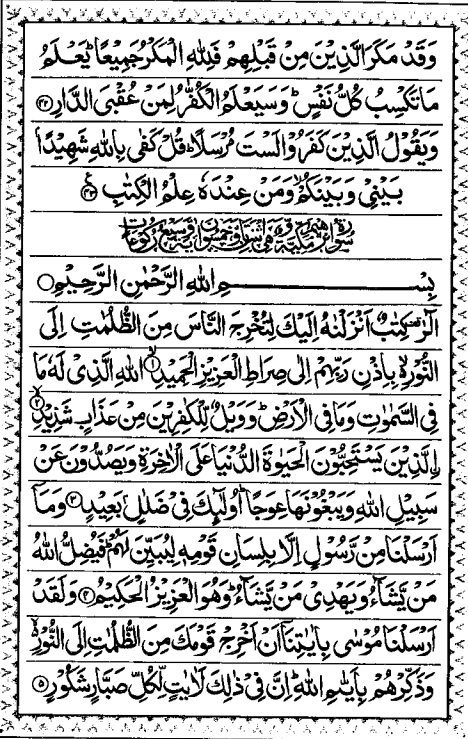 وَقَدْ مَكَرَ الَّذِيْنَ مِنْ قَبْلِهِمْ فَلِلّٰهِ الْمَكْرُ جَمِيْعًا ؕ يَعْلَمُ
مَا تَكْسِبُ كُلُّ نَفْسٍ ؕ وَسَيَعْلَمُ الْكُفّٰرُ لِمَنْ عُقْبَى الدَّارِ ﴿۴۲﴾
وَيَقُوْلُ الَّذِيْنَ كَفَرُوْا لَسْتَ مُرْسَلًا ؕ قُلْ كَفٰى بِاللّٰهِ شَهِيْدًۢا
بَيْنِيْ وَبَيْنَكُمْ ۙ وَمَنْ عِنْدَهٗ عِلْمُ الْكِتٰبِ ﴿۴۳﴾
بِسْمِ اللّٰهِ الرَّحْمٰنِ الرَّحِيْمِ
الٓرٰ ۫ كِتٰبٌ اَنْزَلْنٰهُ اِلَيْكَ لِتُخْرِجَ النَّاسَ مِنَ الظُّلُمٰتِ اِلَى
النُّوْرِ ۙ بِاِذْنِ رَبِّهِمْ اِلٰى صِرَاطِ الْعَزِيْزِ الْحَمِيْدِ ﴿۱﴾ اللّٰهِ الَّذِيْ لَهٗ مَا
فِي السَّمٰوٰتِ وَمَا فِي الْاَرْضِ ؕ وَوَيْلٌ لِّلْكٰفِرِيْنَ مِنْ عَذَابٍ شَدِيْدٍ ﴿۲﴾
الَّذِيْنَ يَسْتَحِبُّوْنَ الْحَيٰوةَ الدُّنْيَا عَلَى الْاٰخِرَةِ وَيَصُدُّوْنَ عَنْ
سَبِيْلِ اللّٰهِ وَيَبْغُوْنَهَا عِوَجًا ؕ اُولٰٓئِكَ فِيْ ضَلٰلٍۢ بَعِيْدٍ ﴿۳﴾ وَمَاۤ
اَرْسَلْنَا مِنْ رَّسُوْلٍ اِلَّا بِلِسَانِ قَوْمِهٖ لِيُبَيِّنَ لَهُمْ ؕ فَيُضِلُّ اللّٰهُ
مَنْ يَّشَآءُ وَيَهْدِيْ مَنْ يَّشَآءُ ؕ وَهُوَ الْعَزِيْزُ الْحَكِيْمُ ﴿۴﴾ وَلَقَدْ
اَرْسَلْنَا مُوْسٰى بِاٰيٰتِنَاۤ اَنْ اَخْرِجْ قَوْمَكَ مِنَ الظُّلُمٰتِ اِلَى النُّوْرِ ۙ
وَذَكِّرْهُمْ بِاَيّٰىمِ اللّٰهِ ؕ اِنَّ فِيْ ذٰلِكَ لَاٰيٰتٍ لِّكُلِّ صَبَّارٍ شَكُوْرٍ ﴿۵﴾